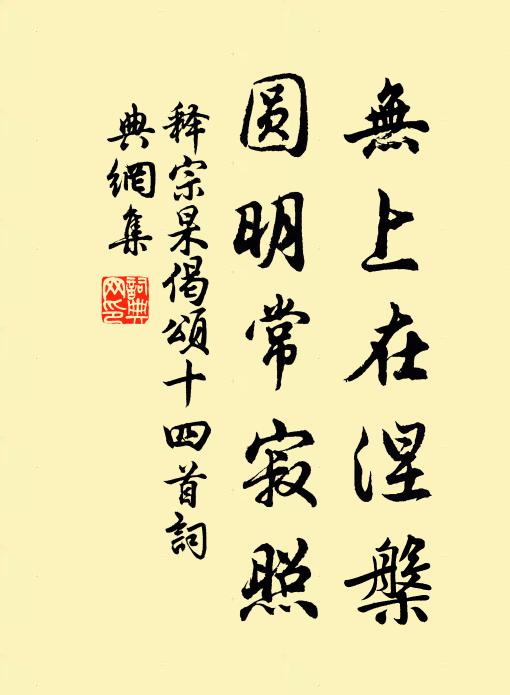 無上在涅槃
圆明常寂照
释宗杲偈頌十四首詞
典網集
詞典
网印